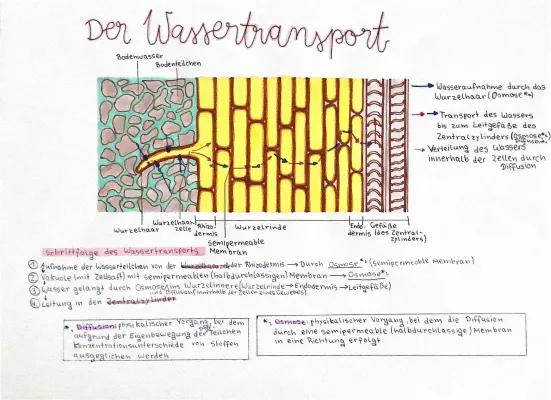 Der Wassertransport
Bodenwasser
Bodenteilchen
Wasseraufnahme durch das
Wurzelhaar (Osmose*2)
Transport des Wassers
bis zum Leitgefäße des
Zentralzylinders (Osmose*2)
Diffusion
Verteilung des Wassers
innerhalb der Zellen durch
Diffusion
Wurzelhaar
Wurzelhaar-
zelle
Rhizo-
dermis
Wurzelrinde
Endo-
dermis
Gefäße
(des Zentral-
zylinders)
semipermeable
Membran
Schrittfolge des Wassertransports
① Aufnahme der Wasserteilchen von der Rhizodermis → Durch Osmose*2 (semipermeable Membran)
② Vakuole (mit Zellsaft) mit semipermeablen (halbdurchlässigen) Membran → Osmose*2
③ Wasser gelangt durch Osmose ins Wurzelinnere (Wurzelrinde → Endodermis → Leitgefäße)
(mit Diffusion innerhalb der Zellen eines Gewebes)
④ Leitung in den Zentralzylinder
*1 Diffusion: physikalischer Vorgang, bei dem
aufgrund der Eigenbewegung der Teilchen
Konzentrationsunterschiede von Stoffen
ausgeglichen werden
*2 Osmose: physikalischer Vorgang bei dem die Diffusion
durch eine semipermeable (halbdurchlässige) Membran
in eine Richtung erfolgt